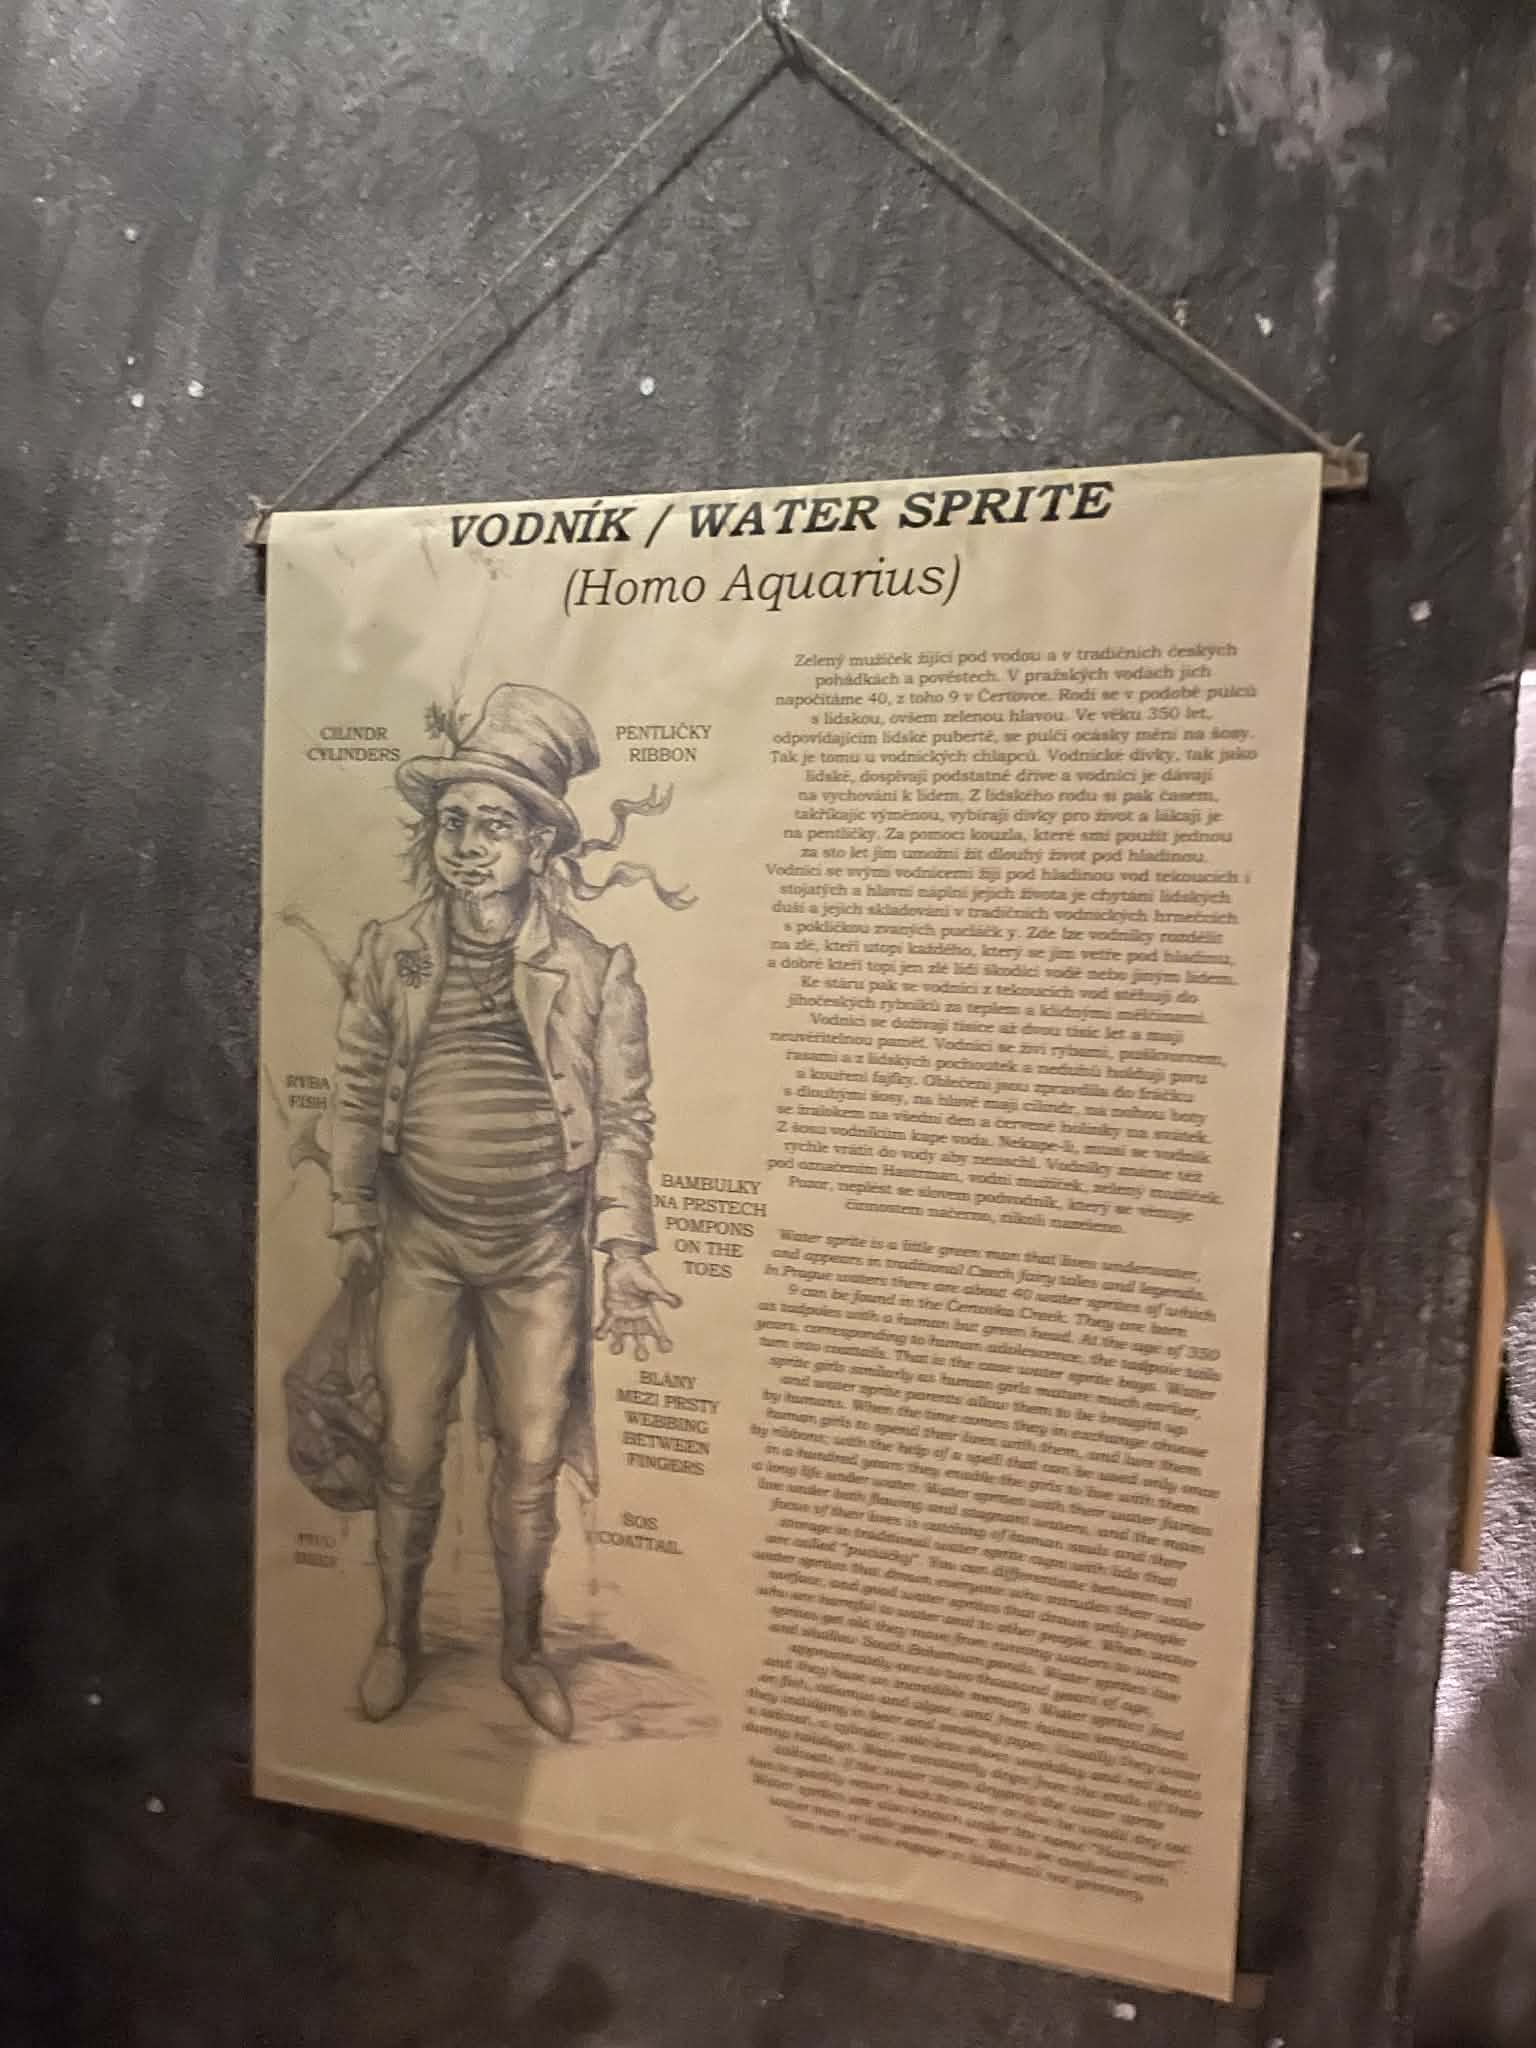 VODNÍK / WATER SPRITE
(Homo Aquarius)
CILINDR
CYLINDERS
PENTLIČKY
RIBBON
RYBA
FISH
BAMBULKY
NA PRSTECH
POMPONS
ON THE
TOES
BLÁNY
MEZI PRSTY
WEBBING
BETWEEN
FINGERS
ŠOS
COATTAIL
PIVO
BEER
Zelený mužíček žijící pod vodou a v tradičních českých
pohádkách a pověstech. V pražských vodách jich
napočítáme 40, z toho 9 v Čertovce. Rodí se v podobě pulců
s lidskou, ovšem zelenou hlavou. Ve věku 350 let,
odpovídajícím lidské pubertě, se pulčí ocásky mění na šosy.
Tak je tomu u vodnických chlapců. Vodnické dívky, tak jako
lidské, dospívají podstatně dříve a vodníci je dávají
na vychování k lidem. Z lidského rodu si pak časem,
takříkajíc výměnou, vybírají dívky pro život a lákají je
na pentličky. Za pomoci kouzla, které smí použít jednou
za sto let jim umožní žít dlouhý život pod hladinou.
Vodníci se svými vodnicemi žijí pod hladinou vod tekoucích i
stojatých a hlavní náplní jejich života je chytání lidských
duší a jejich skladování v tradičních vodnických hrnečcích
s pokličkou zvaných pucláčk y. Zde lze vodníky rozdělit
na zlé, kteří utopí každého, který se jim vetře pod hladinu,
a dobré kteří topí jen zlé lidi škodící vodě nebo jiným lidem.
Ke stáru pak se vodníci z tekoucích vod stěhují do
jihočeských rybníků za teplem a klidnými mělčinami.
Vodníci se dožívají tisíce až dvou tisíc let a mají
neuvěřitelnou paměť. Vodníci se živí rybami, puškvorcem,
řasami a z lidských pochoutek a neduhů holdují pivu
a kouření fajfky. Oblečeni jsou zpravidla do fráčku
s dlouhými šosy, na hlavě mají cilindr, na nohou boty
se šralokem na všední den a červené holínky na svátek.
Z šosu vodníkům kape voda. Nekape-li, musí se vodník
rychle vrátit do vody aby neuschl. Vodníky známe též
pod označením Hastrman, vodní mužíček, zelený mužíček.
Pozor, neplést se slovem podvodník, který se věnuje
činnostem načerno, nikoli nazeleno.
Water sprite is a little green man that lives underwater,
and appears in traditional Czech fairy tales and legends.
In Prague waters there are about 40 water sprites of which
9 can be found in the Certovka Creek. They are born
as tadpoles with a human but green head. At the age of 350
years, corresponding to human adolescence, the tadpole tails
turn into coattails. That is the case water sprite boys. Water
sprite girls similarly as human girls mature much earlier,
and water sprite parents allow them to be brought up
by humans. When the time comes they in exchange choose
human girls to spend their lives with them, and lure them
by ribbons; with the help of a spell that can be used only once
in a hundred years they enable the girls to live with them
a long life under water. Water sprites with their water fairies
live under both flowing and stagnant waters, and the main
focus of their lives is catching of human souls and their
storage in traditional water sprite cups with lids that
are called "puclacky". You can differentiate between evil
water sprites that drown everyone who intrudes their water
surface, and good water sprites that drown only people
who are harmful to water and to other people. When water
sprites get old they move from running waters to warm
and shallow South Bohemian ponds. Water sprites live
approximately one to two thousand years of age,
and they have an incredible memory. Water sprites feed
on fish, calamus and algae, and from human temptations
they indulging in beer and smoking pipes. Usually they wear
a tailcoat, a cylinder, on weekday and red boots
during holidays. Water constantly drips from the ends of their
tailcoats. If the water stops dripping the water sprite
has to quickly return back to water or else he would dry out.
Water sprites are also known under the name "Hastrman"
water man or little green man. Not to be confused with